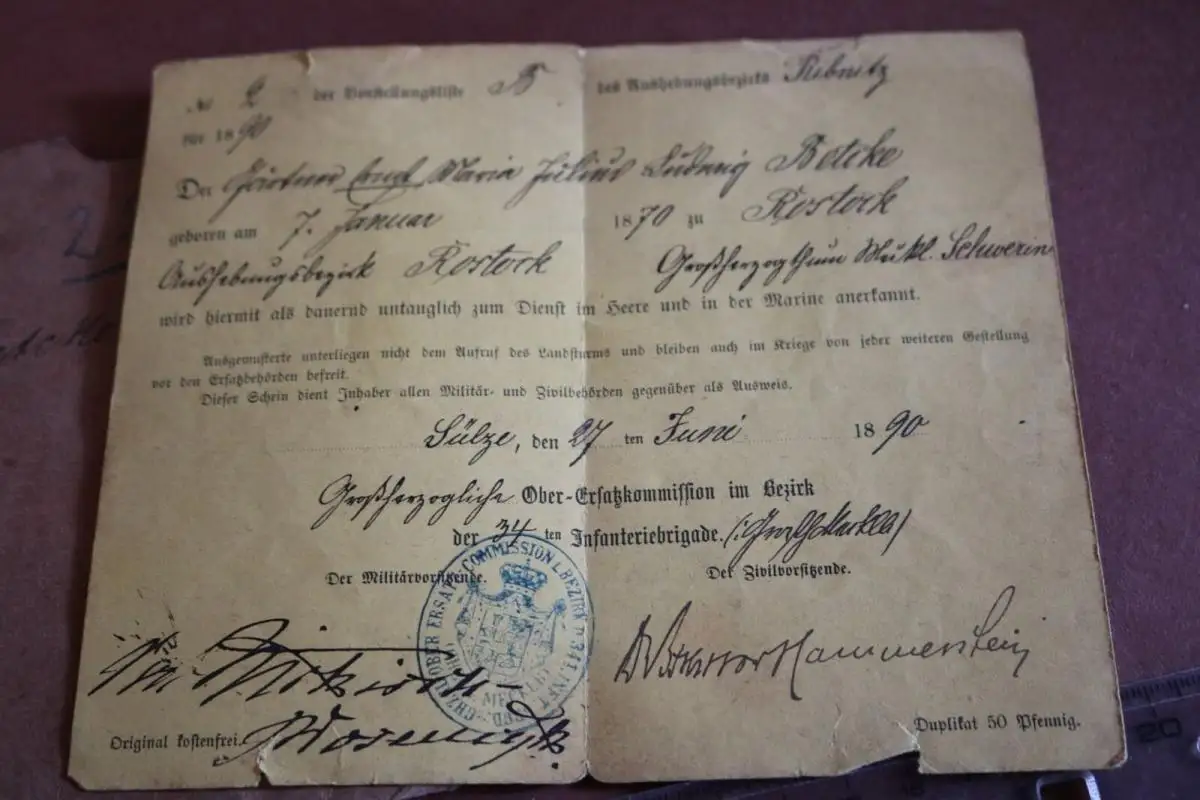 No 2 der Vorstellungsliste B des Aushebungsbezirks Ribnitz
für 1890
Der Gärtner Ernst Maria Julius Ludwig Betcke
geboren am 7. Januar 1870 zu Rostock
Aushebungsbezirk Rostock Großherzogthum Meckl. Schwerin
wird hiermit als dauernd untauglich zum Dienst im Heere und in der Marine anerkannt.
Ausgemusterte unterliegen nicht dem Aufruf des Landsturms und bleiben auch im Kriege von jeder weiteren Gestellung
vor den Ersatzbehörden befreit.
Dieser Schein dient Inhaber allen Militär- und Zivilbehörden gegenüber als Ausweis.
Sülze, den 27 ten Juni 1890
Großherzogliche Ober-Ersatzkommission im Bezirk
der 34 ten Infanteriebrigade.
Der Militärvorsitzende. Der Zivilvorsitzende.
OBER ERSATZ COMMISSION I. BEZIRK D. 34. INF.
Hammerstein
Original kostenfrei. Duplikat 50 Pfennig.
20